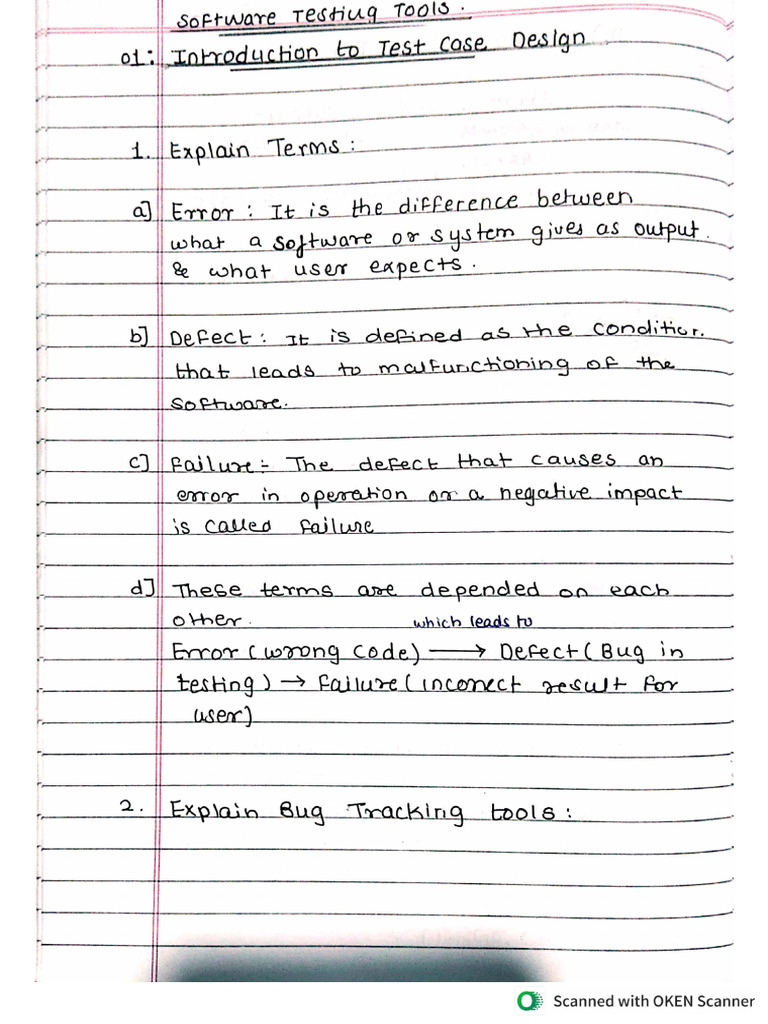 Software Testing Tools.
01: Introduction to Test Case Design
1. Explain Terms:
a] Error: It is the difference between
what a software or system gives as output.
& what user expects.
b] Defect: It is defined as the condition.
that leads to malfunctioning of the
software.
c] Failure:- The defect that causes an
error in operation or a negative impact
is called failure
d] These terms are depended on each
other. which leads to
Error (wrong code) → Defect (Bug in
testing) → Failure (incorrect result for
user)
2. Explain Bug Tracking tools:
Scanned with OKEN Scanner